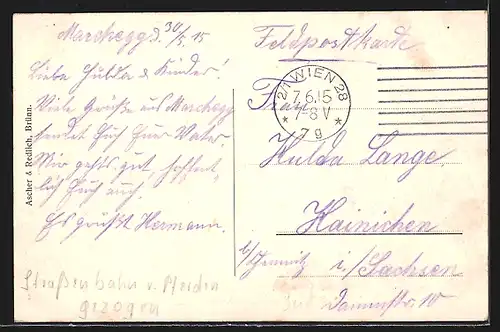 Marchegg d. 30/5. 15
Liebe Hulda & Kinder!
Viele Grüße aus Marchegg
sendet Euch Euer Vater.
Mir gehts gut, hoffent-
lich Euch auch.
Es grüßt Hermann.
Straßenbahn v. Pferden
gezogen
Ascher & Redlich, Brünn
Feldpostkarte
2/1 WIEN 28
7.6.15
7-8 V
* 7g *
Frau
Hulda Lange.
Hainichen
b/Chemnitz i/Sachsen
Dammstr. 10